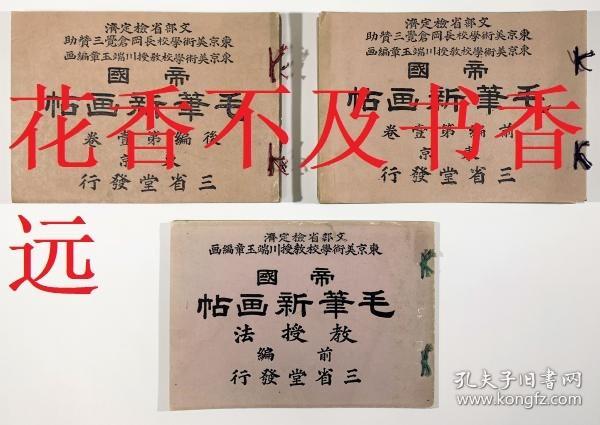 文部省檢定濟
東京美術學校長岡倉覺三賛助
東京美術學校教授川端玉章編画
帝國
毛筆新画帖
後編第壹卷
東京
三省堂發行
文部省檢定濟
東京美術學校長岡倉覺三賛助
東京美術學校教授川端玉章編画
帝國
毛筆新画帖
前編第壹卷
東京
三省堂發行
花香不及书香
远
文部省檢定濟
東京美術學校教授川端玉章編画
帝國
毛筆新画帖
教授法
前編
三省堂發行
孔夫子旧书网
www.kongfz.com